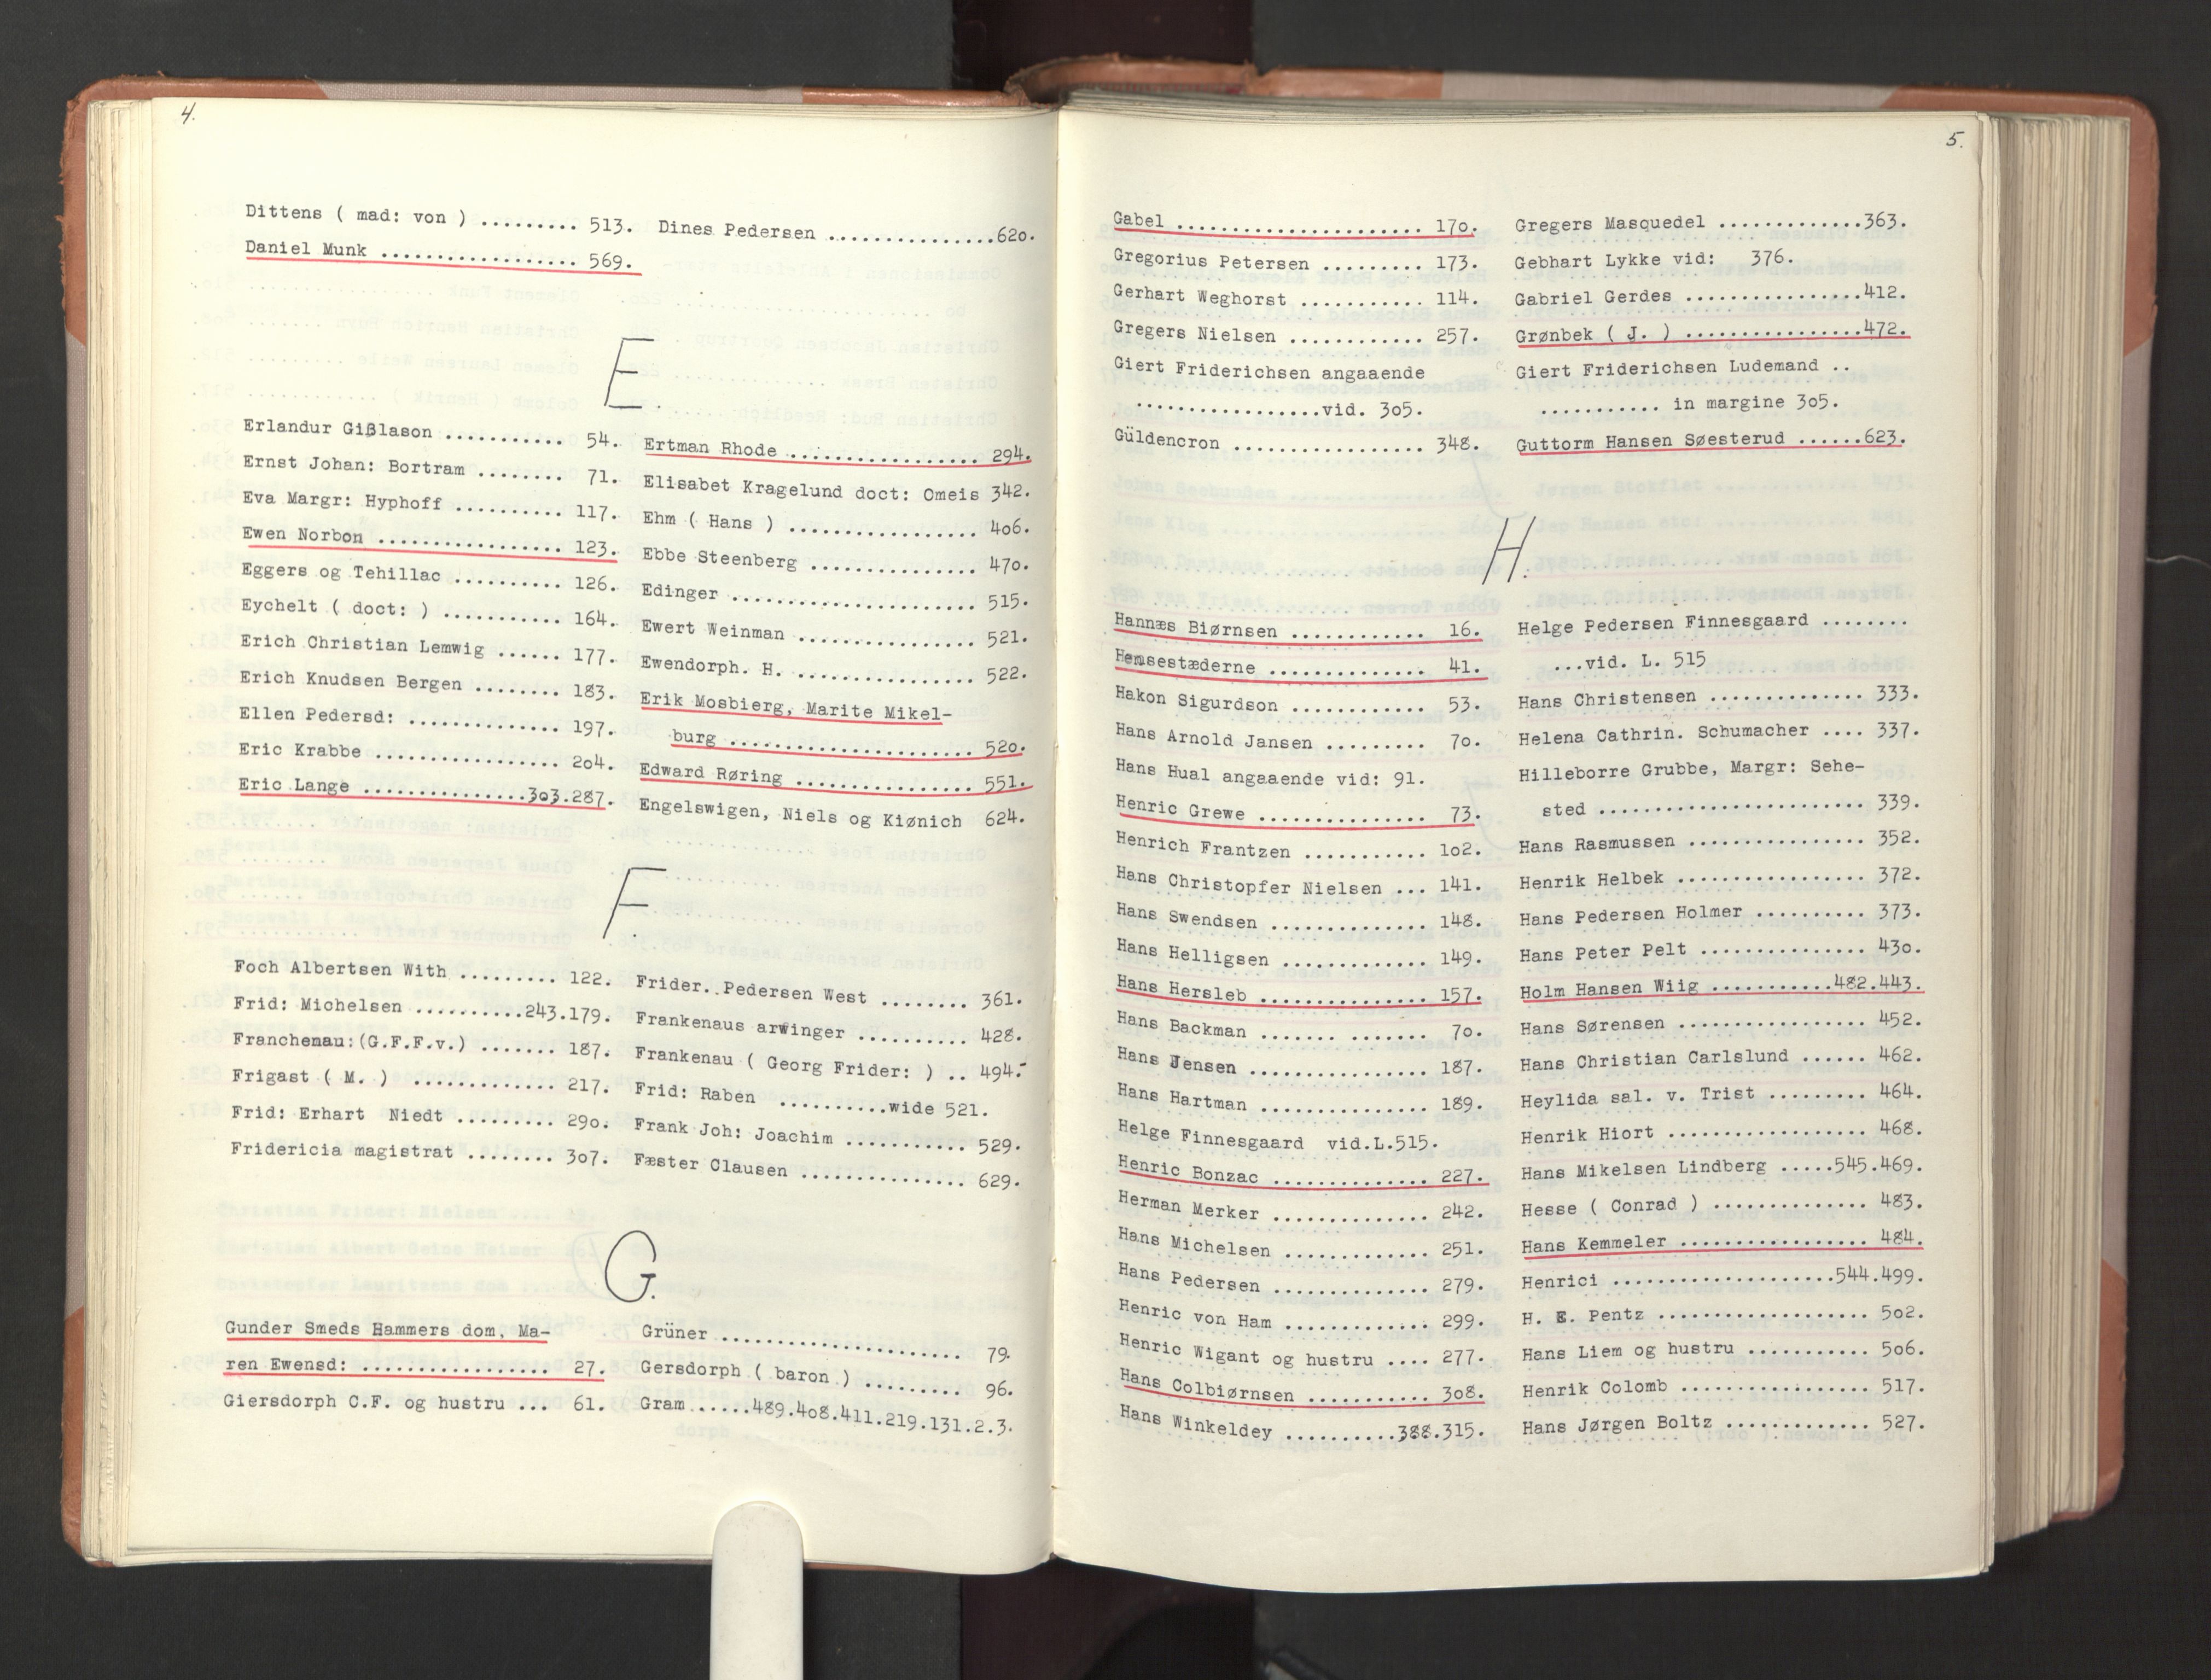 4.
Dittens ( mad: von ) ......... 513.
Daniel Munk .................. 569.
Dines Pedersen ...............620.
E.
Erlandur Gißlason ........... 54.
Ernst Johan: Bortram ........ 71.
Eva Margr: Hyphoff .......... 117.
Ewen Norbon ................. 123.
Eggers og Tehillac .......... 126.
Eychelt ( doct: ) ........... 164.
Erich Christian Lemwig ...... 177.
Erich Knudsen Bergen ........ 183.
Ellen Pedersd: .............. 197.
Eric Krabbe ................. 204.
Eric Lange ...............303.287.
Ertman Rhode .................. 294.
Elisabet Kragelund doct: Omeis 342.
Ehm ( Hans ) .................. 406.
Ebbe Steenberg ................ 470.
Edinger ....................... 515.
Ewert Weinman ................. 521.
Ewendorph. H. ................. 522.
Erik Mosbierg, Marite Mikel-
burg ....................... 520.
Edward Røring ................. 551.
Engelswigen, Niels og Kiønich 624.
F.
Foch Albertsen With ......... 122.
Frid: Michelsen ..........243.179.
Franchenau:(G.F.F.v.) ....... 187.
Frigast ( M. ) ............. 217.
Frid: Erhart Niedt ......... 290.
Fridericia magistrat ........ 307.
Frider. Pedersen West ........ 361.
Frankenaus arwinger .......... 428.
Frankenau ( Georg Frider: ) .. 494.
Frid: Raben ..........wide 521.
Frank Joh: Joachim ........... 529.
Fæster Clausen ............... 629.
G.
Gunder Smeds Hammers dom, Ma-
ren Ewensd: ................. 27.
Giersdorph C.F. og hustru ... 61.
Grüner ....................... 79.
Gersdorph ( baron ) ......... 96.
Gram ......489.408.411.219.131.2.3.
5.
Gabel ....................... 170.
Gregorius Petersen ......... 173.
Gerhart Weghorst ........... 114.
Gregers Nielsen ............ 257.
Giert Friderichsen angaaende
.................vid. 305.
Güldencron ................. 348.
Gregers Masquedel .............363.
Gebhart Lykke vid: 376.
Gabriel Gerdes ................412.
Grønbek ( J. ) ................472.
Giert Friderichsen Ludemand ..
........... in margine 305.
Guttorm Hansen Søesterud ......623.
H.
Hannæs Biørnsen ............ 16.
Hemsestæderne .............. 41.
Hakon Sigurdson ............ 53.
Hans Arnold Jansen ......... 70.
Hans Hual angaaende vid: 91.
Henric Grewe ............... 73.
Henrich Frantzen ........... 102.
Hans Christopfer Nielsen ... 141.
Hans Swendsen .............. 148.
Hans Helligsen ............. 149.
Hans Hersleb ............... 157.
Hans Backman ....... ....... 70.
Hans Jensen ................ 187.
Hans Hartman ............... 189.
Helge Finnesgaard vid.L.515.
Henric Bonzac .............. 227.
Herman Merker .............. 242.
Hans Michelsen ............. 251.
Hans Pedersen .............. 279.
Henric von Ham ............. 299.
Henric Wigant og hustru .... 277.
Hans Colbiørnsen ........... 308.
Hans Winkeldey ..........388.315.
Helge Pedersen Finnesgaard ........
...vid. L. 515
Hans Christensen .............. 333.
Helena Cathrin. Schumacher .... 337.
Hilleborre Grubbe, Margr: Sehe-
sted ........................ 339.
Hans Rasmussen ................ 352.
Henrik Helbek ................. 372.
Hans Pedersen Holmer .......... 373.
Hans Peter Pelt ............... 430.
Holm Hansen Wiig ...........482.443.
Hans Sørensen ................. 452.
Hans Christian Carlslund ...... 462.
Heylida sal. v. Trist ......... 464.
Henrik Hiort .................. 468.
Hans Mikelsen Lindberg .....545.469.
Hesse ( Conrad ) .............. 483.
Hans Kemmeler ................. 484.
Henrici ....................544.499.
H. E. Pentz ................... 502.
Hans Liem og hustru ........... 506.
Henrik Colomb ................. 517.
Hans Jørgen Boltz ............. 527.